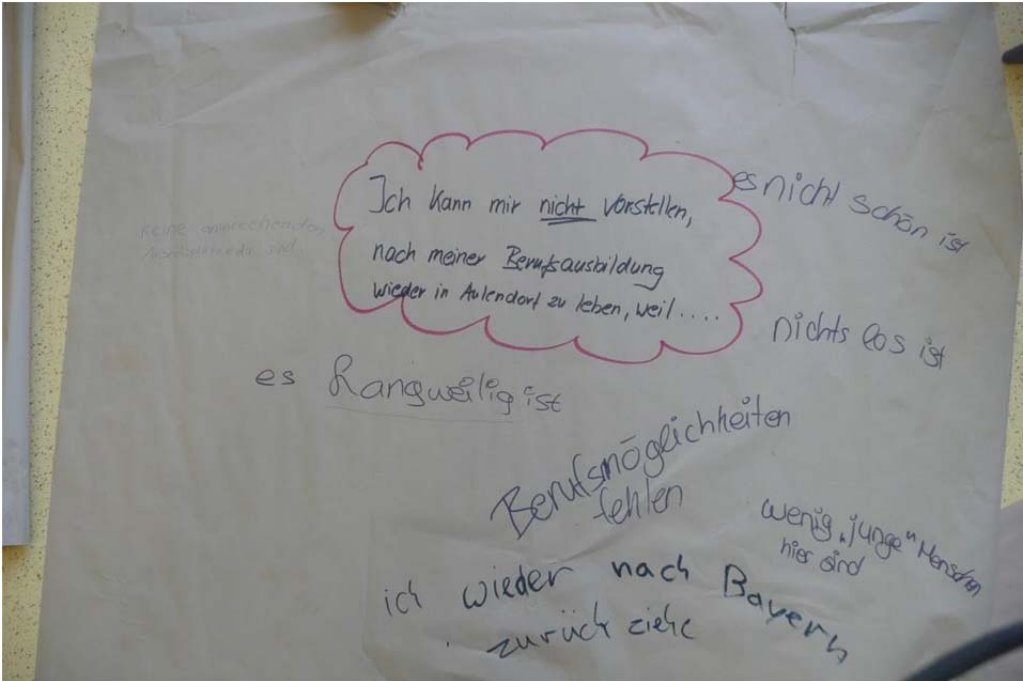 Ich kann mir nicht vorstellen,
nach meiner Berufsausbildung
wieder in Aulendorf zu leben, weil....
es nicht schön ist
keine ansprechenden
nichts los ist
es Langweilig ist
Berufsmöglichkeiten
fehlen
wenig "junge" Menschen
hier sind
ich wieder nach Bayern
zurück ziehe